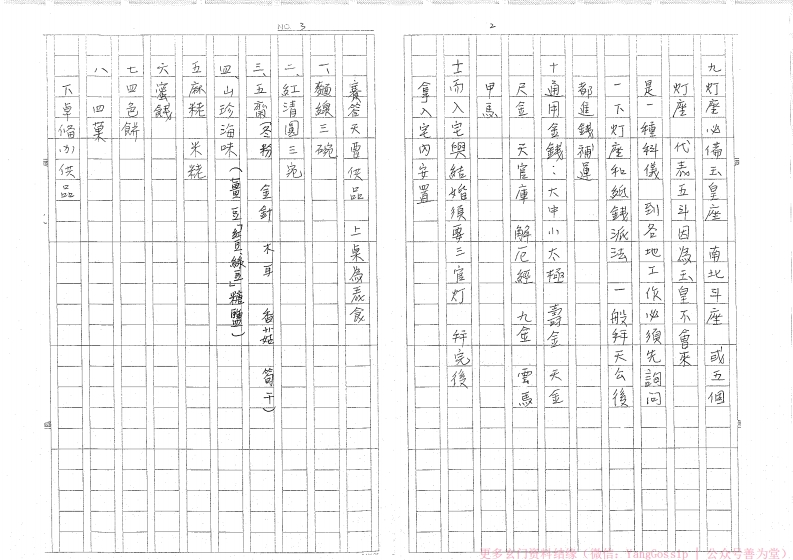 2
九灯座必備玉皇座 南北斗座 或五個
灯座 代表五斗因為玉皇不會來
是一種科儀 到各地工作必須先詢問
一下灯座和紙錢派法 一般拜天公後
都進錢補運
十通用金錢：大中小太極 壽金 天金
尺金 天官庫 解厄經 九金 雲馬
甲馬
士而入宅與結婚須要三官灯 拜完後
拿入宅內安置
NO. 3
賽答天曹供品 上桌為素食
一、麵線三碗
二、紅清圓三宛
三、五齋(冬粉 金針 木耳 香菇 筍干)
四、山珍海味(薑豆「紅豆綠豆」糖鹽)
五麻粩 米粩
六蜜餞
七四色餅
八、四菓
下桌備办供品
更多玄门资料结缘（微信：YangGossip | 公众号善为堂）